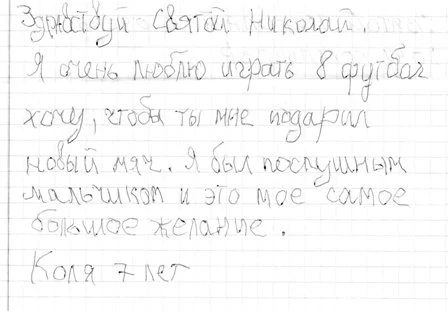 Здравствуй Святой Николай
Я очень люблю играть в футбол
хочу, чтобы ты мне подарил
новый мяч. Я был послушным
мальчиком и это мое самое
большое желание.
Коля 7 лет